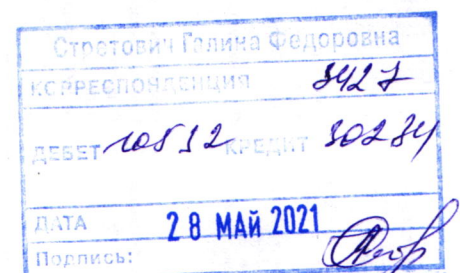 Стретович Галина Федоровна
КОРРЕСПОНДЕНЦИЯ 3427
ДЕБЕТ 10532 КРЕДИТ 30234
ДАТА 28 МАЙ 2021
Подпись: